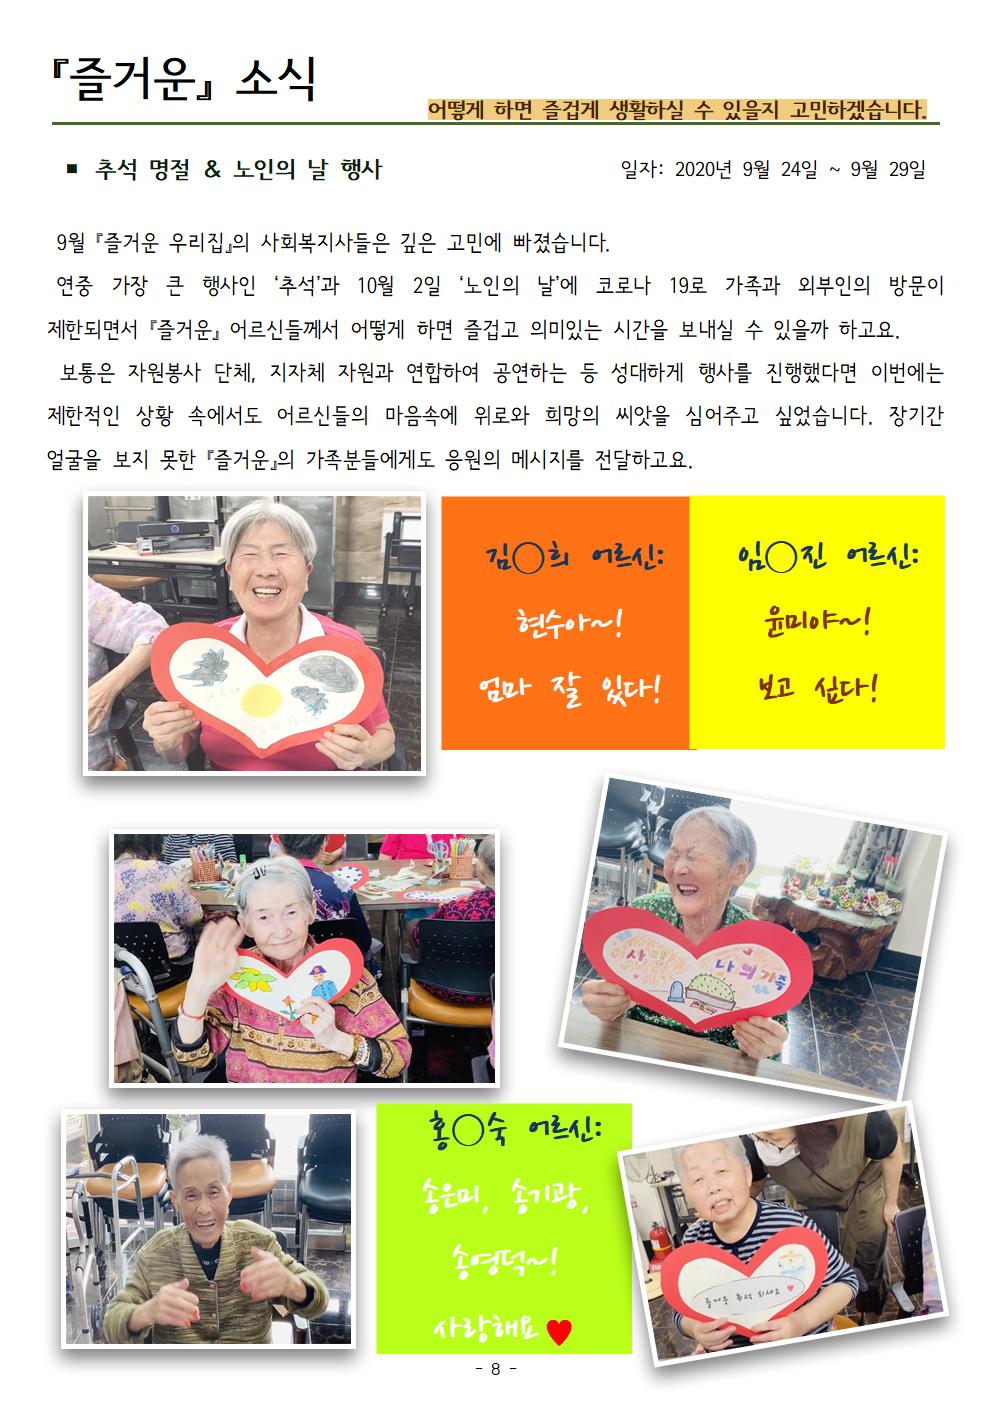 『즐거운』 소식
어떻게 하면 즐겁게 생활하실 수 있을지 고민하겠습니다.
■ 추석 명절 & 노인의 날 행사
일자: 2020년 9월 24일 ~ 9월 29일
9월 『즐거운 우리집』의 사회복지사들은 깊은 고민에 빠졌습니다.
연중 가장 큰 행사인 ‘추석’과 10월 2일 ‘노인의 날’에 코로나 19로 가족과 외부인의 방문이
제한되면서 『즐거운』 어르신들께서 어떻게 하면 즐겁고 의미있는 시간을 보내실 수 있을까 하고요.
보통은 자원봉사 단체, 지자체 자원과 연합하여 공연하는 등 성대하게 행사를 진행했다면 이번에는
제한적인 상황 속에서도 어르신들의 마음속에 위로와 희망의 씨앗을 심어주고 싶었습니다. 장기간
얼굴을 보지 못한 『즐거운』의 가족분들에게도 응원의 메시지를 전달하고요.
김◯희 어르신:
현수아~!
엄마 잘 있다!
임◯진 어르신:
윤미야~!
보고 싶다!
사랑 나의 가족
홍◯숙 어르신:
송은미, 송기광,
송영덕~!
사랑해요♥
즐거운 추석 되세요 ♥
- 8 -